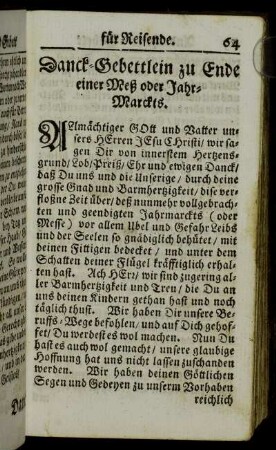 für Reisende. 64
Danck-Gebettlein zu Ende
einer Meß oder Jahr-
Marckts.
Allmächtiger GOtt und Vatter un-
sers HErren JEsu CHristi/ wir sa-
gen Dir von innerstem Hertzens-
grund/ Lob/ Preiß/ Ehr und ewigen Danck/
daß Du uns und die Unserige/ durch deine
grosse Gnad und Barmhertzigkeit/ dise ver-
floßne Zeit über/ deß nunmehr vollgebrach-
ten und geendigten Jahrmarckts (oder
Meß) vor allem Ubel und Gefahr Leibs
und der Seelen so gnädiglich behütet/ mit
deinen Fittigen bedecket/ und unter dem
Schatten deiner Flügel kräfftiglich erhal-
ten hast. Ach HErr/ wir sind zu gering al-
ler Barmhertzigkeit und Treu/ die Du an
uns deinen Kindern gethan hast und noch
täglich thust. Wir haben Dir unsere Be-
ruffs-Wege befohlen/ und auf Dich gehof-
fet/ Du werdest es wol machen. Nun Du
hast es auch wol gemacht/ unsere glaubige
Hoffnung hat uns nicht lassen zuschanden
werden. Wir haben deinen Göttlichen
Segen und Gedeyen zu unserm Vorhaben
reichlich